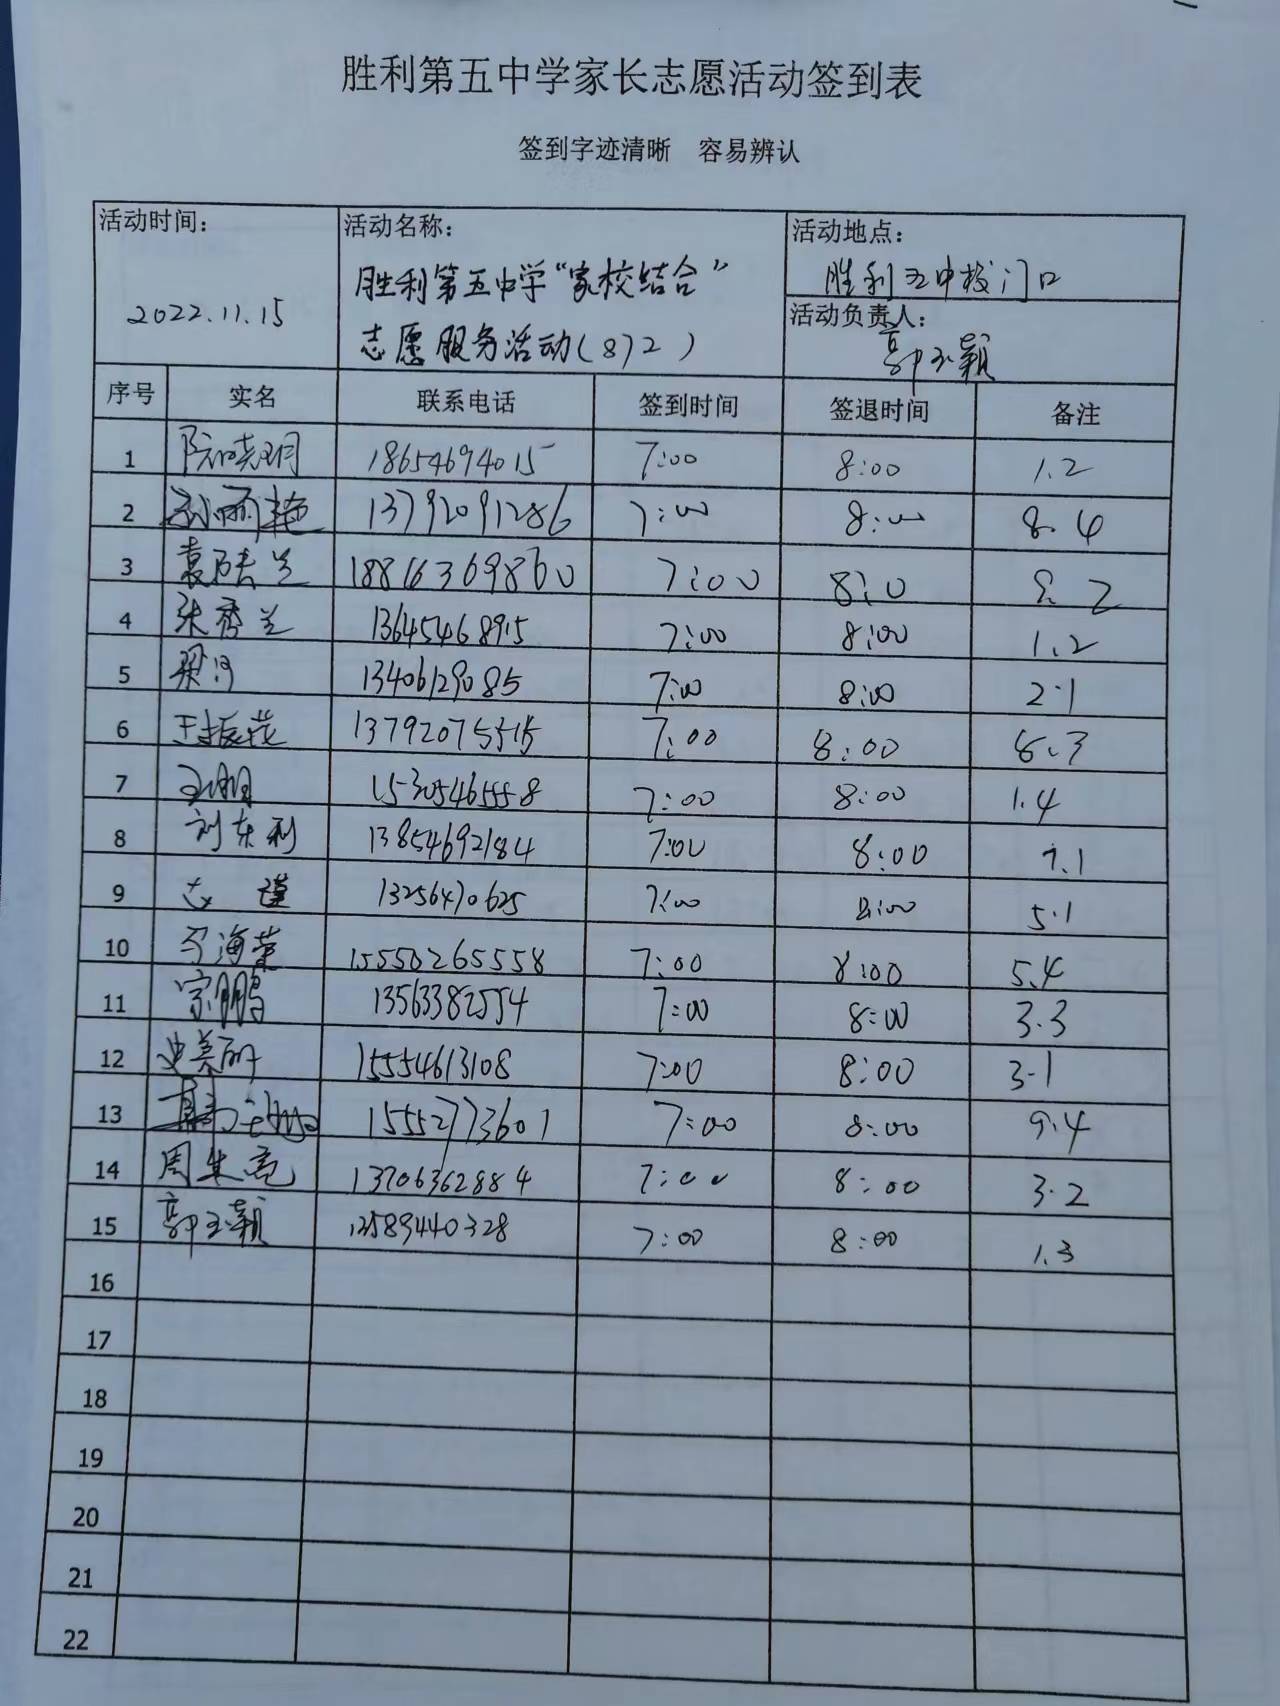 胜利第五中学家长志愿活动签到表
签到字迹清晰 容易辨认
活动时间: 活动名称: 活动地点:
胜利第五中学“家校结合” 胜利五中校门口
2022.11.15 活动负责人:
志愿服务活动(872) 郭玉颖
序号 实名 联系电话 签到时间 签退时间 备注
1 18654694015 7:00 8:00 1.2
2 13792091286 7:00 8:00 8.4
3 18816369860 7:00 8:0 8.2
4 张秀兰 13645468915 7:00 8:00 1.2
5 13406129085 7:00 8:00 2.1
6 王振花 13792075515 7:00 8:00 8.3
7 15305465558 7:00 8:00 1.4
8 刘东利 13854692184 7:00 8:00 7.1
9 13256470625 7:00 8:00 5.1
10 15550265558 7:00 8:00 5.4
11 宗鹏 13563382554 7:00 8:00 3.3
12 15554613108 7:00 8:00 3.1
13 15552773601 7:00 8:00 9.4
14 13706362884 7:00 8:00 3.2
15 郭玉颖 13589440328 7:00 8:00 1.3
16
17
18
19
20
21
22